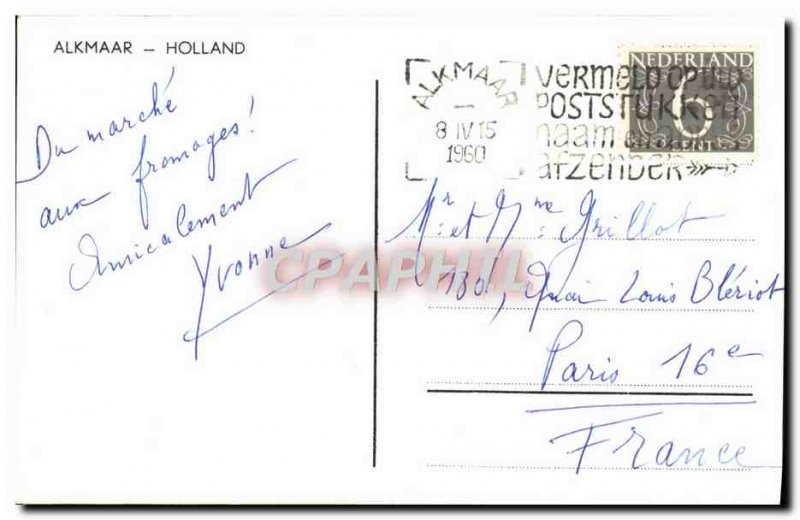 ALKMAAR – HOLLAND
Du marché
aux fromages!
Amicalement
Yvonne
ALKMAAR
8 IV 15
1960
VERMELD OP UW
POSTSTUKKEN
naam en
afzender
NEDERLAND
6
CENT
CPAPHIL
Mr et Mme Grillot
180, Quai Louis Blériot
Paris 16e
France